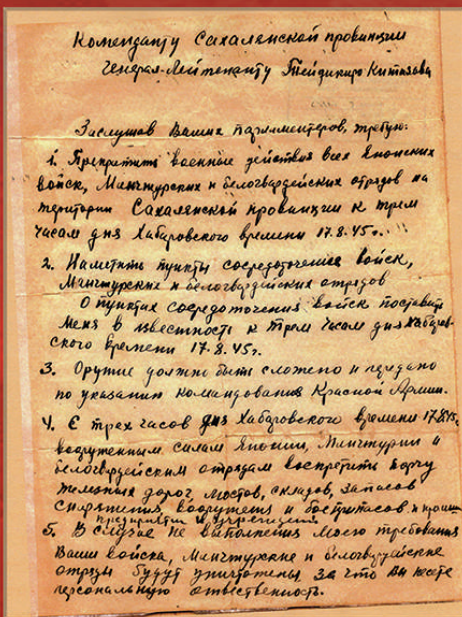 Коменданту Сахалянской провинции
Генерал-Лейтенанту Тейдикиро Китазава
Заслушав Ваших парламентеров, требую:
1. Прекратить военные действия всех Японских
войск, Манчжурских и белогвардейских отрядов на
територии Сахалянской провинции к трем
часам дня Хабаровского времени 17.8.45г.
2. Наметить пункты сосредоточения войск,
Манчжурских и белогвардейских отрядов
О пунктах сосредоточения войск поставить
меня в известность к трем часам дня Хабаров-
ского времени 17.8.45г.
3. Оружие должно быть сложено и передано
по указанию командования Красной Армии.
4. С трех часов дня Хабаровского времени 17.8.45г.
вооруженным силам Японии, Манчжурии и
белогвардейским отрядам воспретить порчу
железных дорог, мостов, складов, запасов
снаряжения, вооружения и боеприпасов, и
предприятий и учреждений
5. В случае не выполнения моего требования
Ваши войска, Манчжурские и белогвардейские
отряды будут уничтожены, за что вы несете
персональную ответственность.